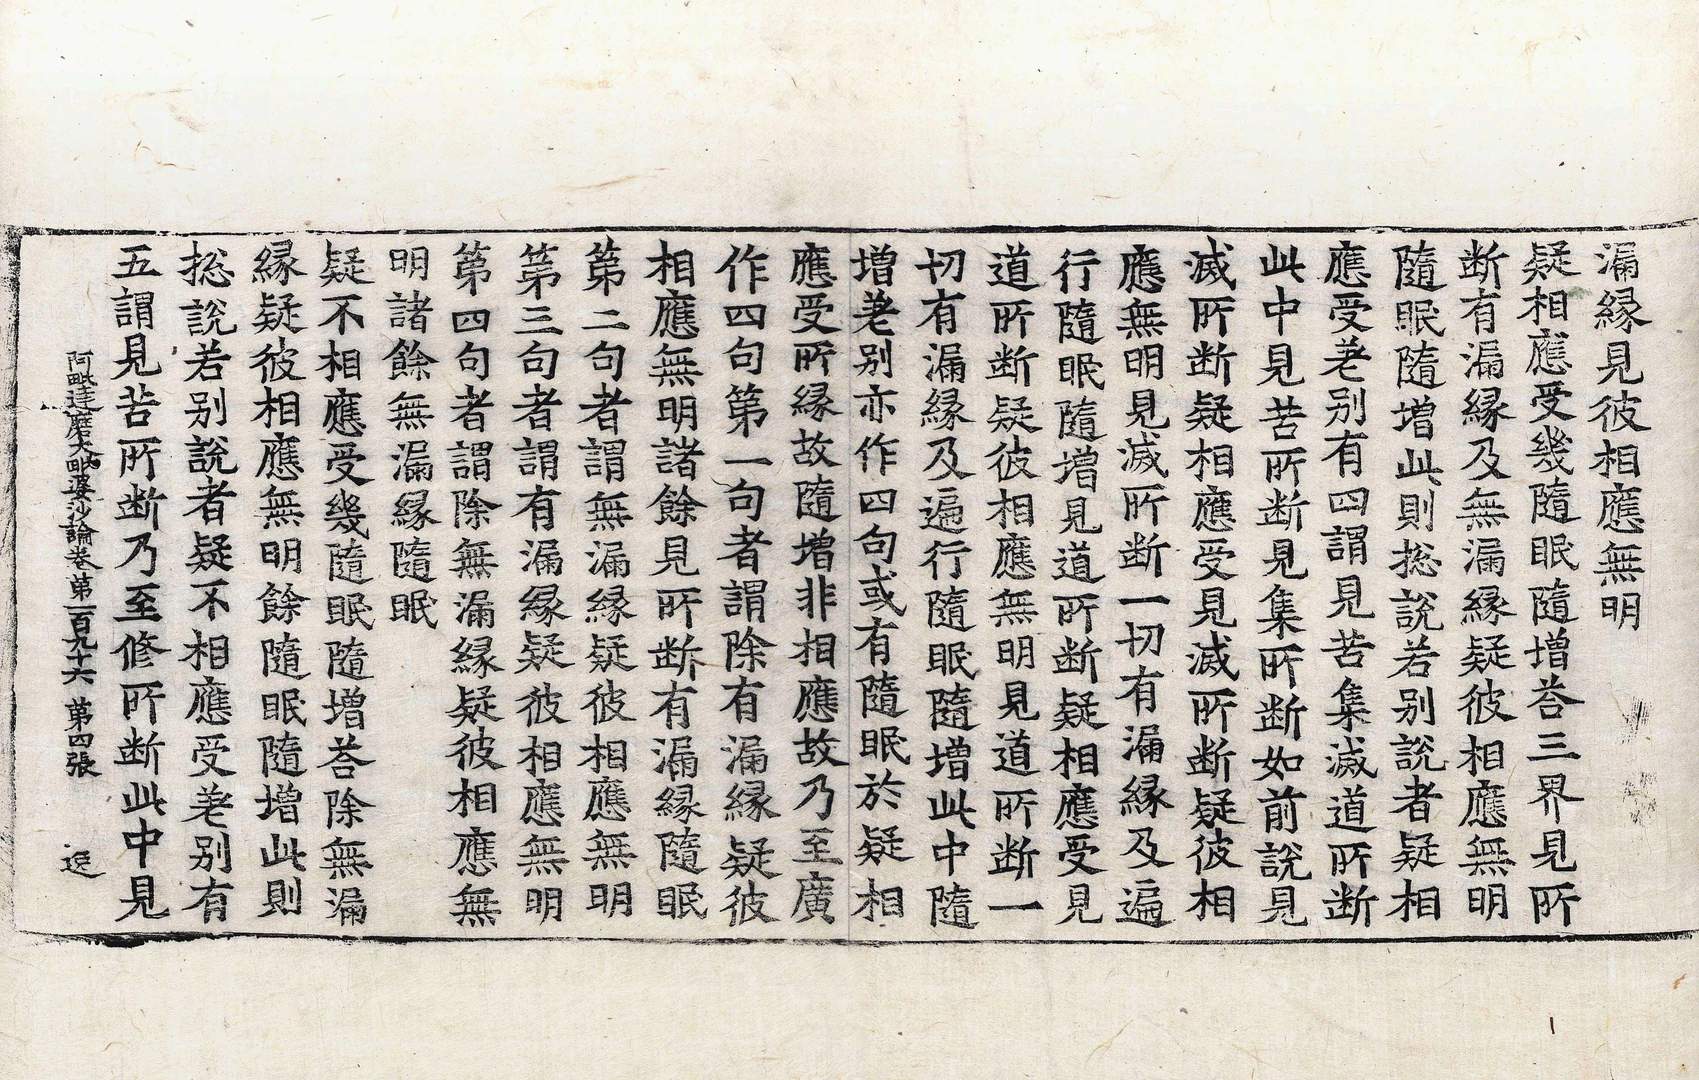 漏縁見彼相應無明
疑相應受幾隨眠隨増荅三界見所
断有漏縁及無漏縁疑彼相應無明
隨眠隨増此則捴說若别說者疑相
應受差别有四謂見苦集滅道所断
此中見苦所断見集所断如前說見
滅所断疑相應受見滅所断疑彼相
應無明見滅所断一切有漏縁及遍
行隨眠隨増見道所断疑相應受見
道所断疑彼相應無明見道所断一
切有漏縁及遍行隨眠隨増此中隨
増差别亦作四句或有隨眠於疑相
應受所縁故隨増非相應故乃至廣
作四句第一句者謂除有漏縁疑彼
相應無明諸餘見所断有漏縁隨眠
第二句者謂無漏縁疑彼相應無明
第三句者謂有漏縁疑彼相應無明
第四句者謂除無漏縁疑彼相應無
明諸餘無漏縁隨眠
疑不相應受幾隨眠隨増荅除無漏
縁疑彼相應無明餘隨眠隨増此則
捴說若别說者疑不相應受差别有
五謂見苦所断乃至修所断此中見
阿毗達磨大毗婆沙論卷第一百九十六 第四張 迳